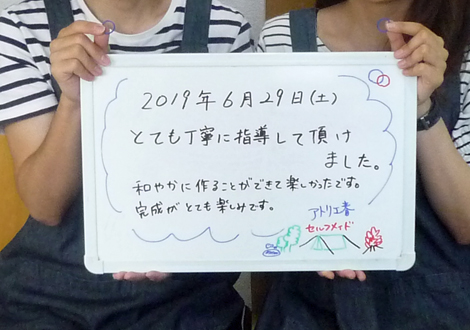 2019年6月29日(土)
とても丁寧に指導して頂け
ました。
和やかに作ることができて楽しかったです。
完成がとても楽しみです。
アトリエ春
セルフメイド